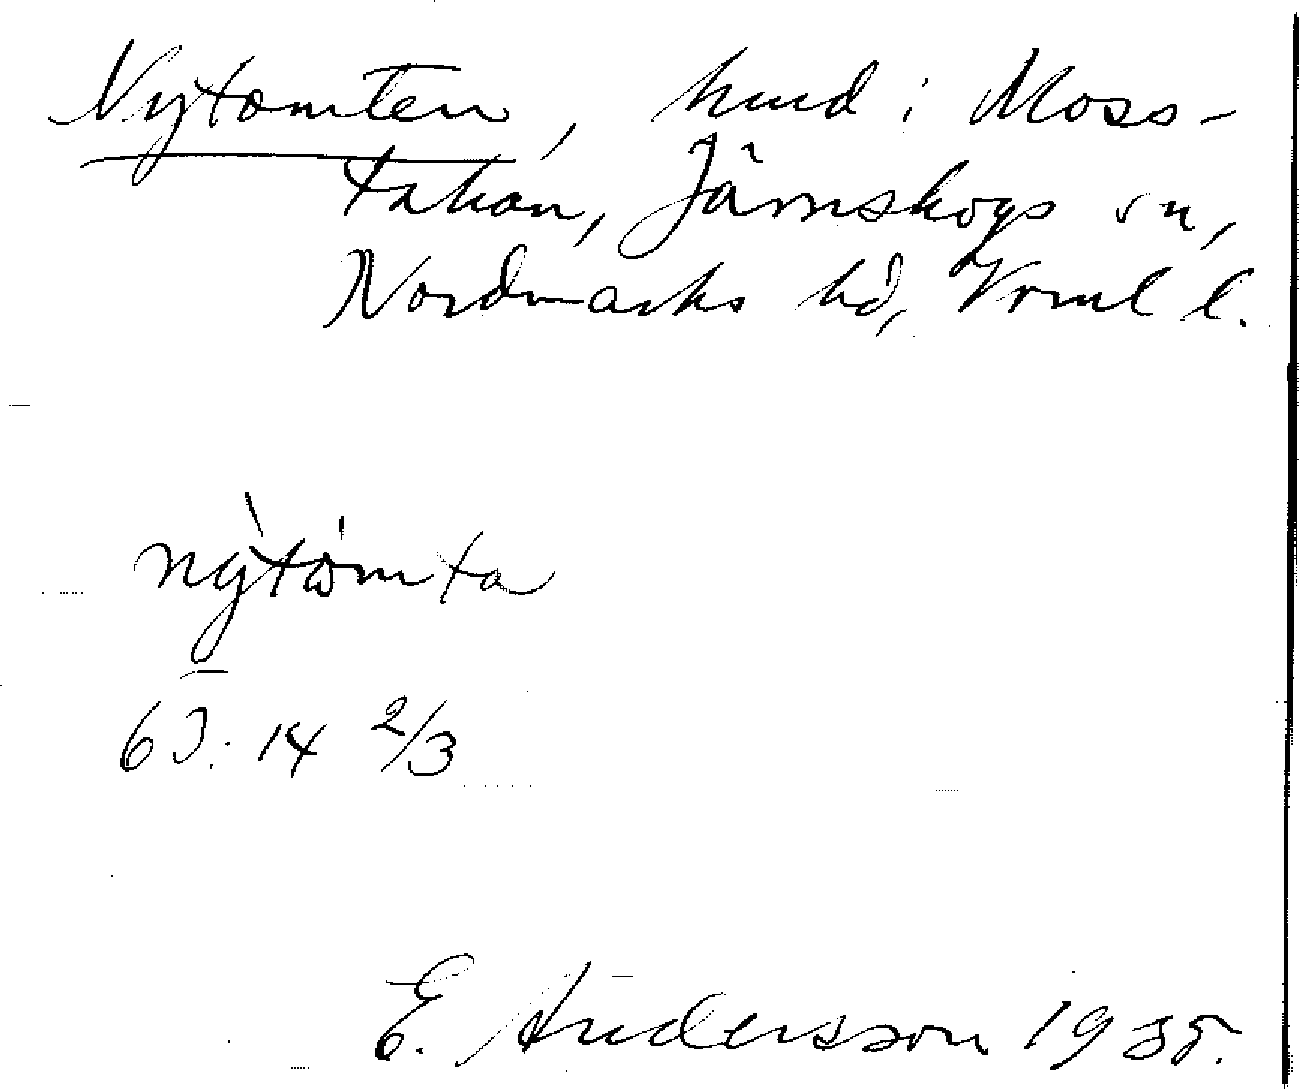 Nytomten, hmd i Moss-
takan, Järnskogs sn,
Nordmarks hd, Vrml l.
nỳtòmta
63: 14 2/3
E. Andersson 1935.